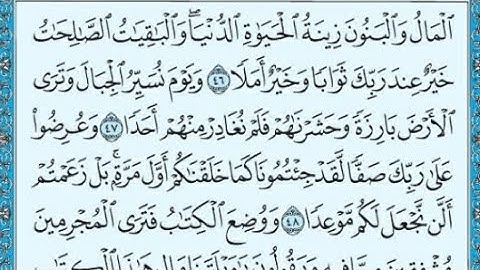 ٱلۡمَالُ وَٱلۡبَنُونَ زِينَةُ ٱلۡحَيَوٰةِ ٱلدُّنۡيَاۖ وَٱلۡبَٰقِيَٰتُ ٱلصَّٰلِحَٰتُ
خَيۡرٌ عِندَ رَبِّكَ ثَوَابٗا وَخَيۡرٌ أَمَلٗا ٤٦ وَيَوۡمَ نُسَيِّرُ ٱلۡجِبَالَ وَتَرَى
ٱلۡأَرۡضَ بَارِزَةٗ وَحَشَرۡنَٰهُمۡ فَلَمۡ نُغَادِرۡ مِنۡهُمۡ أَحَدٗا ٤٧ وَعُرِضُواْ
عَلَىٰ رَبِّكَ صَفّٗا لَّقَدۡ جِئۡتُمُونَا كَمَا خَلَقۡنَٰكُمۡ أَوَّلَ مَرَّةِۭۚ بَلۡ زَعَمۡتُمۡ
أَلَّن نَّجۡعَلَ لَكُم مَّوۡعِدٗا ٤٨ وَوُضِعَ ٱلۡكِتَٰبُ فَتَرَى ٱلۡمُجۡرِمِينَ
مُشۡفِقِينَ مِمَّا فِيهِ وَيَقُولُونَ يَٰوَيۡلَتَنَا مَالِ هَٰذَا ٱلۡكِتَٰبِ